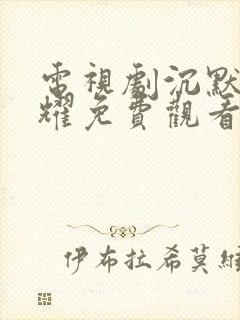 電視劇沉默
耀免費觀看
伊布拉希莫維